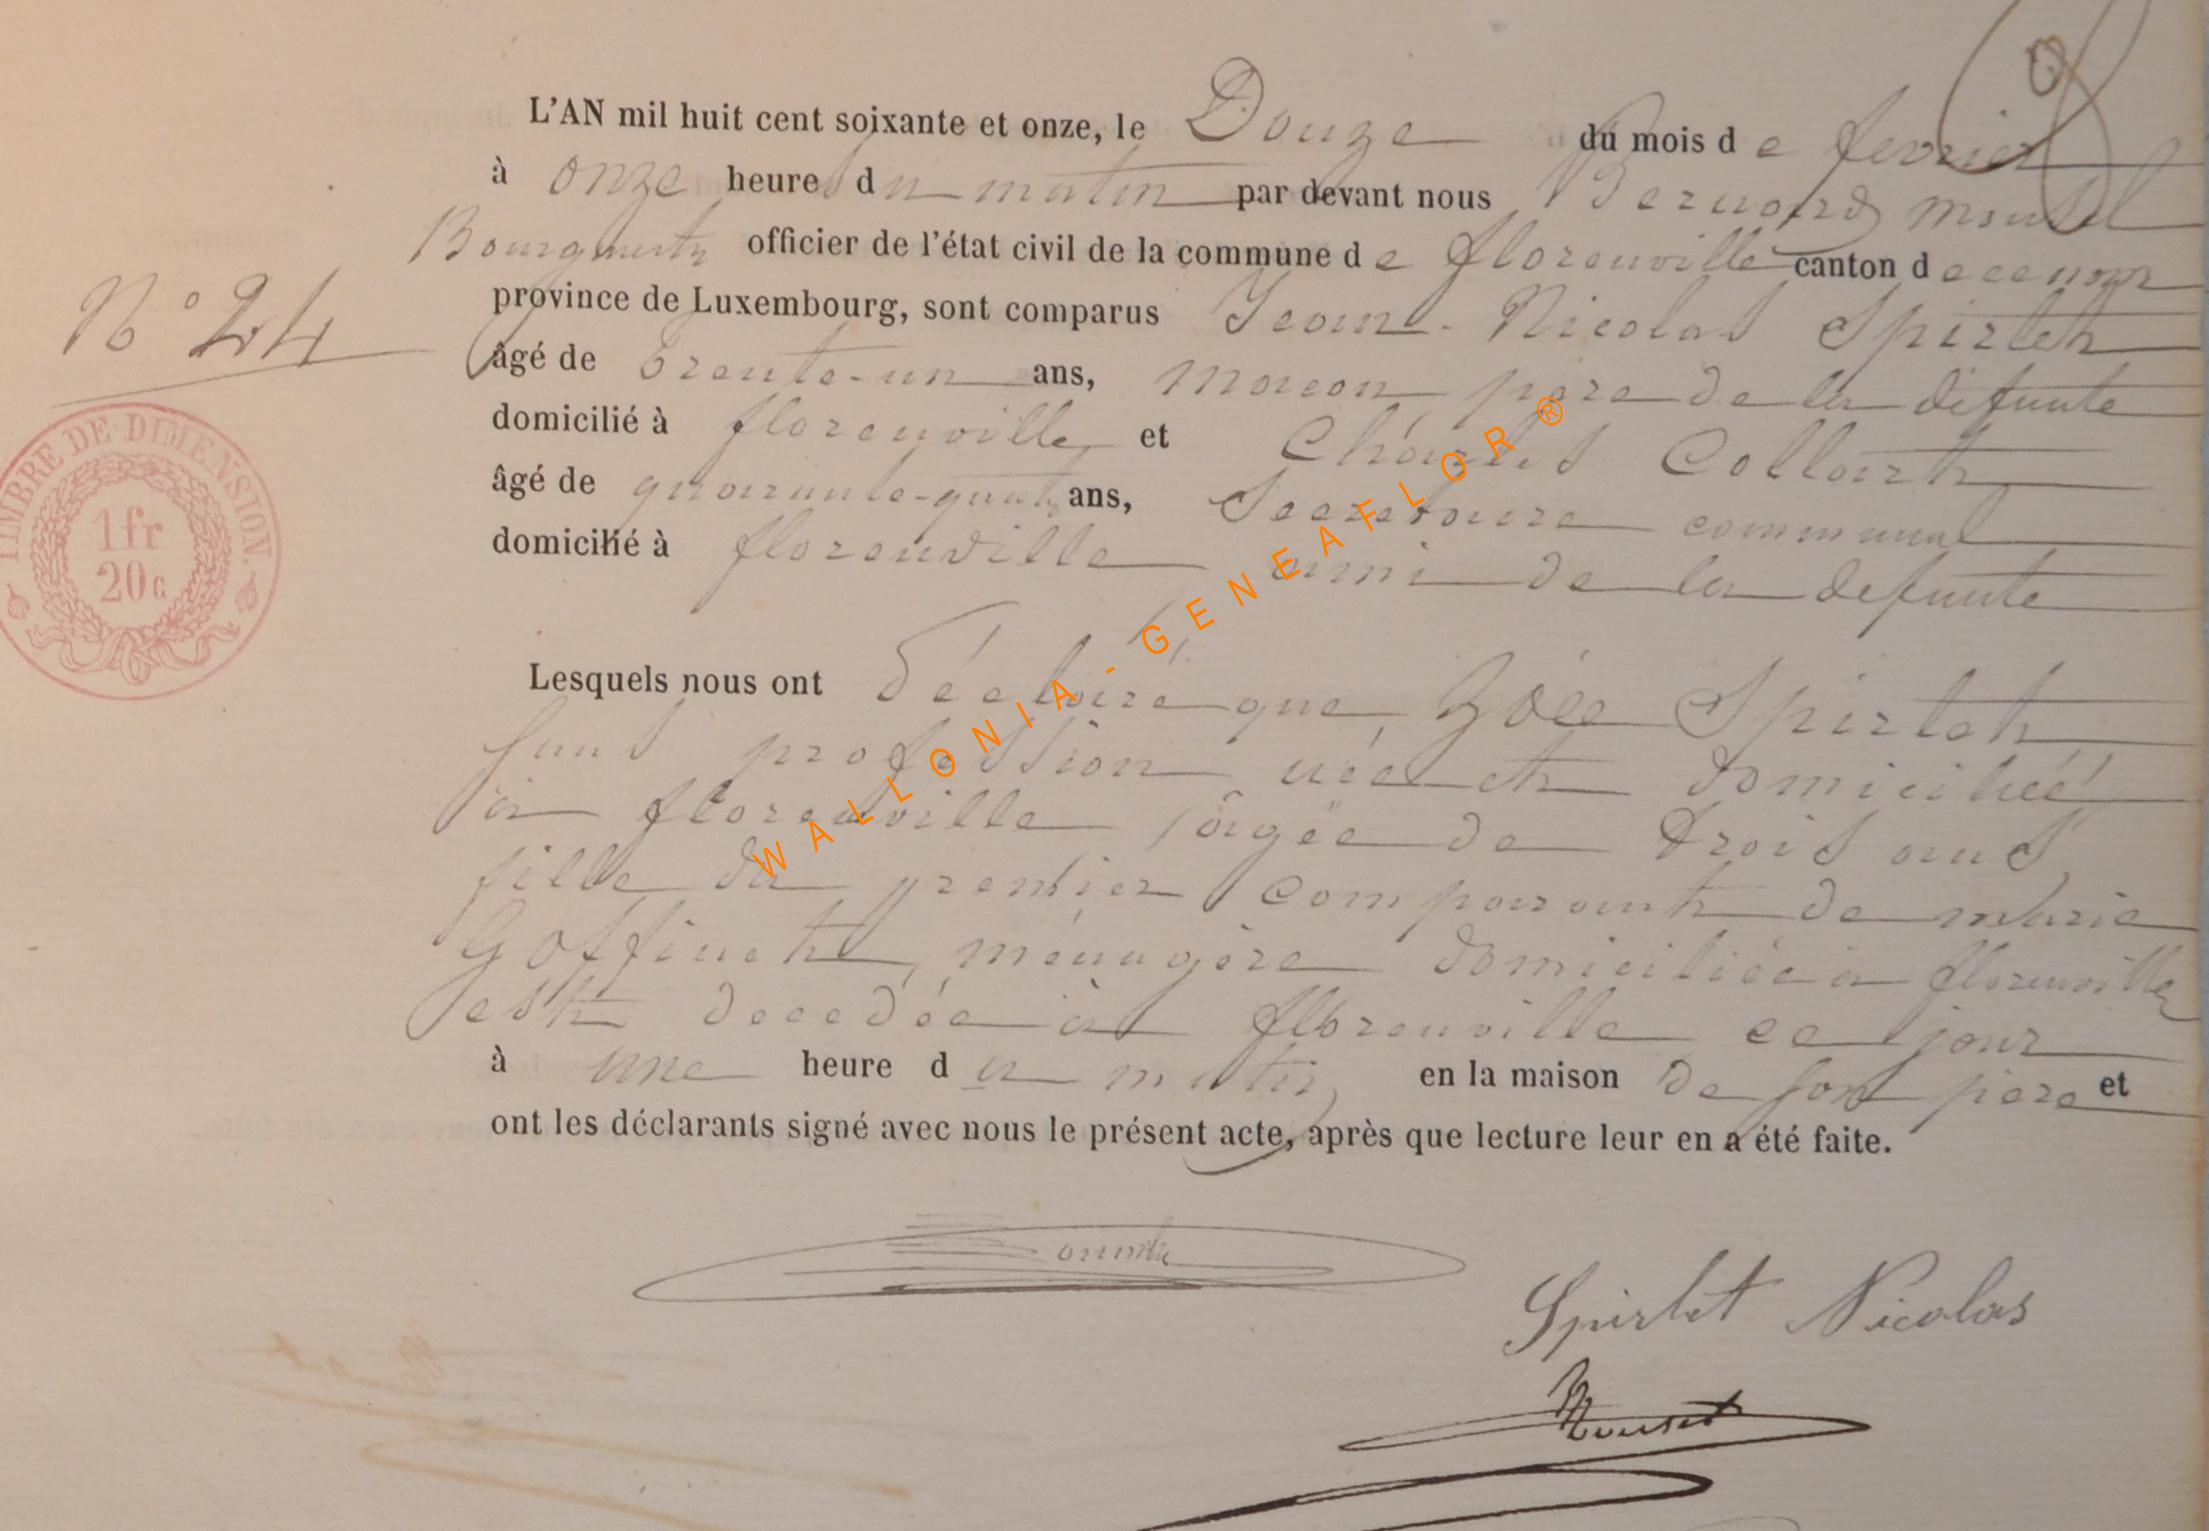 L'AN mil huit cent soixante et onze, le Douze du mois de fevrier
à onze heures du matin par devant nous Bernard Mousel
Bourgmestre officier de l'état civil de la commune de florenville canton de
province de Luxembourg, sont comparus Jean-Nicolas Spirlet
N° 24
âgé de trente-un ans, macon, père de la défunte
domicilié à florenville et Charles Collart
âgé de quarante-quatre ans, Secretaire communal
domicilié à florenville ami de la defunte
TIMBRE DE DIMENSION.
1 fr
20 c
Lesquels nous ont déclaré que, Zoée Spirlet
sans profession née et domiciliée
à florenville âgée de trois ans,
fille du premier comparant de marie
Goffinet, ménagère domiciliée à florenville
est decedée à florenville ce jour
à une heure du matin, en la maison de son père et
ont les déclarants signé avec nous le présent acte, après que lecture leur en a été faite.
Spirlet Nicolas
WALLONIA-GENEAFLOR®